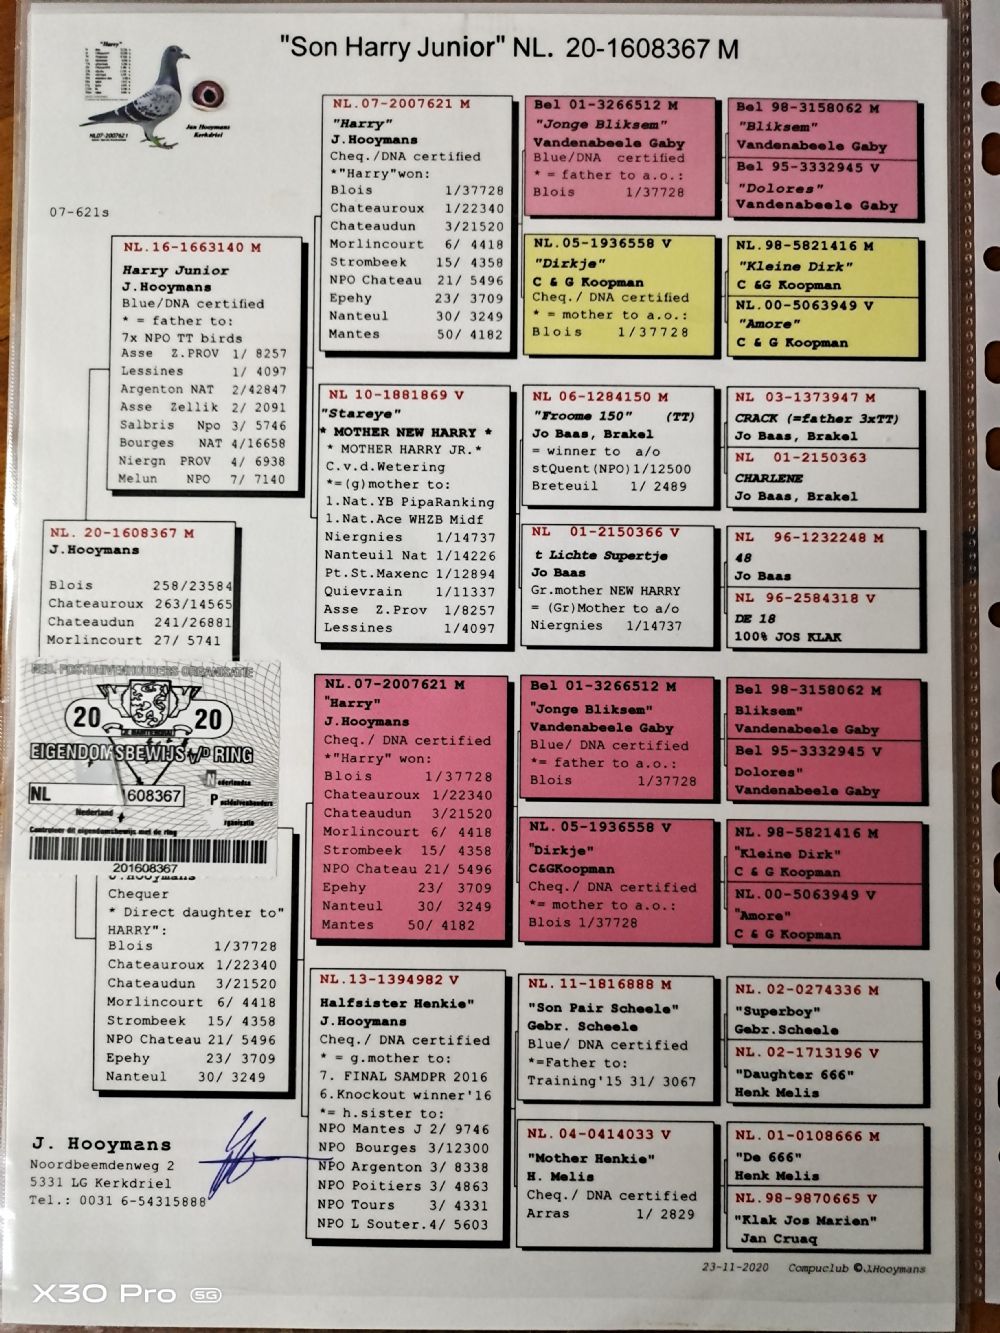 "Son Harry Junior" NL. 20-1608367 M
"Harry"
NL07-2007621
Jan Hooymans
Kerkdriel
07-621s
NL.16-1663140 M
Harry Junior
J.Hooymans
Blue/DNA certified
* = father to:
7x NPO TT birds
Asse Z.PROV 1/ 8257
Lessines 1/ 4097
Argenton NAT 2/42847
Asse Zellik 2/ 2091
Salbris Npo 3/ 5746
Bourges NAT 4/16658
Niergn PROV 4/ 6938
Melun NPO 7/ 7140
NL. 20-1608367 M
J.Hooymans
Blois 258/23584
Chateauroux 263/14565
Chateaudun 241/26881
Morlincourt 27/ 5741
NED. POSTDUIVENHOUDERS-ORGANISATIE
20 20
EIGENDOMSBEWIJS v/d RING
NL 608367
Nederland
Nederlandse
Postduivenhouders
Organisatie
Controleer dit eigendomsbewijs met de ring
201608367
J.Hooymans
Chequer
* Direct daughter to"
HARRY":
Blois 1/37728
Chateauroux 1/22340
Chateaudun 3/21520
Morlincourt 6/ 4418
Strombeek 15/ 4358
NPO Chateau 21/ 5496
Epehy 23/ 3709
Nanteul 30/ 3249
NL.07-2007621 M
"Harry"
J.Hooymans
Cheq./DNA certified
*"Harry"won:
Blois 1/37728
Chateauroux 1/22340
Chateaudun 3/21520
Morlincourt 6/ 4418
Strombeek 15/ 4358
NPO Chateau 21/ 5496
Epehy 23/ 3709
Nanteul 30/ 3249
Mantes 50/ 4182
NL 10-1881869 V
"Stareye"
* MOTHER NEW HARRY *
* MOTHER HARRY JR.*
C.v.d.Wetering
*=(g)mother to:
1.Nat.YB PipaRanking
1.Nat.Ace WHZB Midf
Niergnies 1/14737
Nanteuil Nat 1/14226
Pt.St.Maxenc 1/12894
Quievrain 1/11337
Asse Z.Prov 1/8257
Lessines 1/4097
NL.07-2007621 M
"Harry"
J.Hooymans
Cheq./ DNA certified
*"Harry" won:
Blois 1/37728
Chateauroux 1/22340
Chateaudun 3/21520
Morlincourt 6/ 4418
Strombeek 15/ 4358
NPO Chateau 21/ 5496
Epehy 23/ 3709
Nanteul 30/ 3249
Mantes 50/ 4182
NL.13-1394982 V
Halfsister Henkie"
J.Hooymans
Cheq./ DNA certified
* = g.mother to:
7. FINAL SAMDPR 2016
6.Knockout winner'16
*= h.sister to:
NPO Mantes J 2/ 9746
NPO Bourges 3/12300
NPO Argenton 3/ 8338
NPO Poitiers 3/ 4863
NPO Tours 3/ 4331
NPO L Souter.4/ 5603
Bel 01-3266512 M
"Jonge Bliksem"
Vandenabeele Gaby
Blue/DNA certified
* = father to a.o.:
Blois 1/37728
NL.05-1936558 V
"Dirkje"
C & G Koopman
Cheq./ DNA certified
* = mother to a.o.:
Blois 1/37728
NL 06-1284150 M
"Froome 150" (TT)
Jo Baas, Brakel
= winner to a/o
stQuent(NPO)1/12500
Breteuil 1/ 2489
NL 01-2150366 V
t Lichte Supertje
Jo Baas
Gr.mother NEW HARRY
= (Gr)Mother to a/o
Niergnies 1/14737
Bel 01-3266512 M
"Jonge Bliksem"
Vandenabeele Gaby
Blue/ DNA certified
*= father to a.o.:
Blois 1/37728
NL. 05-1936558 V
"Dirkje"
C&GKoopman
Cheq./ DNA certified
*= mother to a.o.:
Blois 1/37728
NL.11-1816888 M
"Son Pair Scheele"
Gebr. Scheele
Blue/ DNA certified
*=Father to:
Training'15 31/ 3067
NL.04-0414033 V
"Mother Henkie"
H. Melis
Cheq./ DNA certified
Arras 1/ 2829
Bel 98-3158062 M
"Bliksem"
Vandenabeele Gaby
Bel 95-3332945 V
"Dolores"
Vandenabeele Gaby
NL.98-5821416 M
"Kleine Dirk"
C &G Koopman
NL.00-5063949 V
"Amore"
C & G Koopman
NL 03-1373947 M
CRACK (=father 3xTT)
Jo Baas, Brakel
NL 01-2150363
CHARLENE
Jo Baas, Brakel
NL 96-1232248 M
48
Jo Baas
NL 96-2584318 V
DE 18
100% JOS KLAK
Bel 98-3158062 M
Bliksem"
Vandenabeele Gaby
Bel 95-3332945 V
Dolores"
Vandenabeele Gaby
NL.98-5821416 M
"Kleine Dirk"
C & G Koopman
NL.00-5063949 V
"Amore"
C & G Koopman
NL.02-0274336 M
"Superboy"
Gebr.Scheele
NL.02-1713196 V
"Daughter 666"
Henk Melis
NL.01-0108666 M
"De 666"
Henk Melis
NL.98-9870665 V
"Klak Jos Marien"
Jan Cruaq
J. Hooymans
Noordbeemdenweg 2
5331 LG Kerkdriel
Tel.: 0031 6-54315888
23-11-2020 Compuclub ©J.Hooymans
X30 Pro 5G